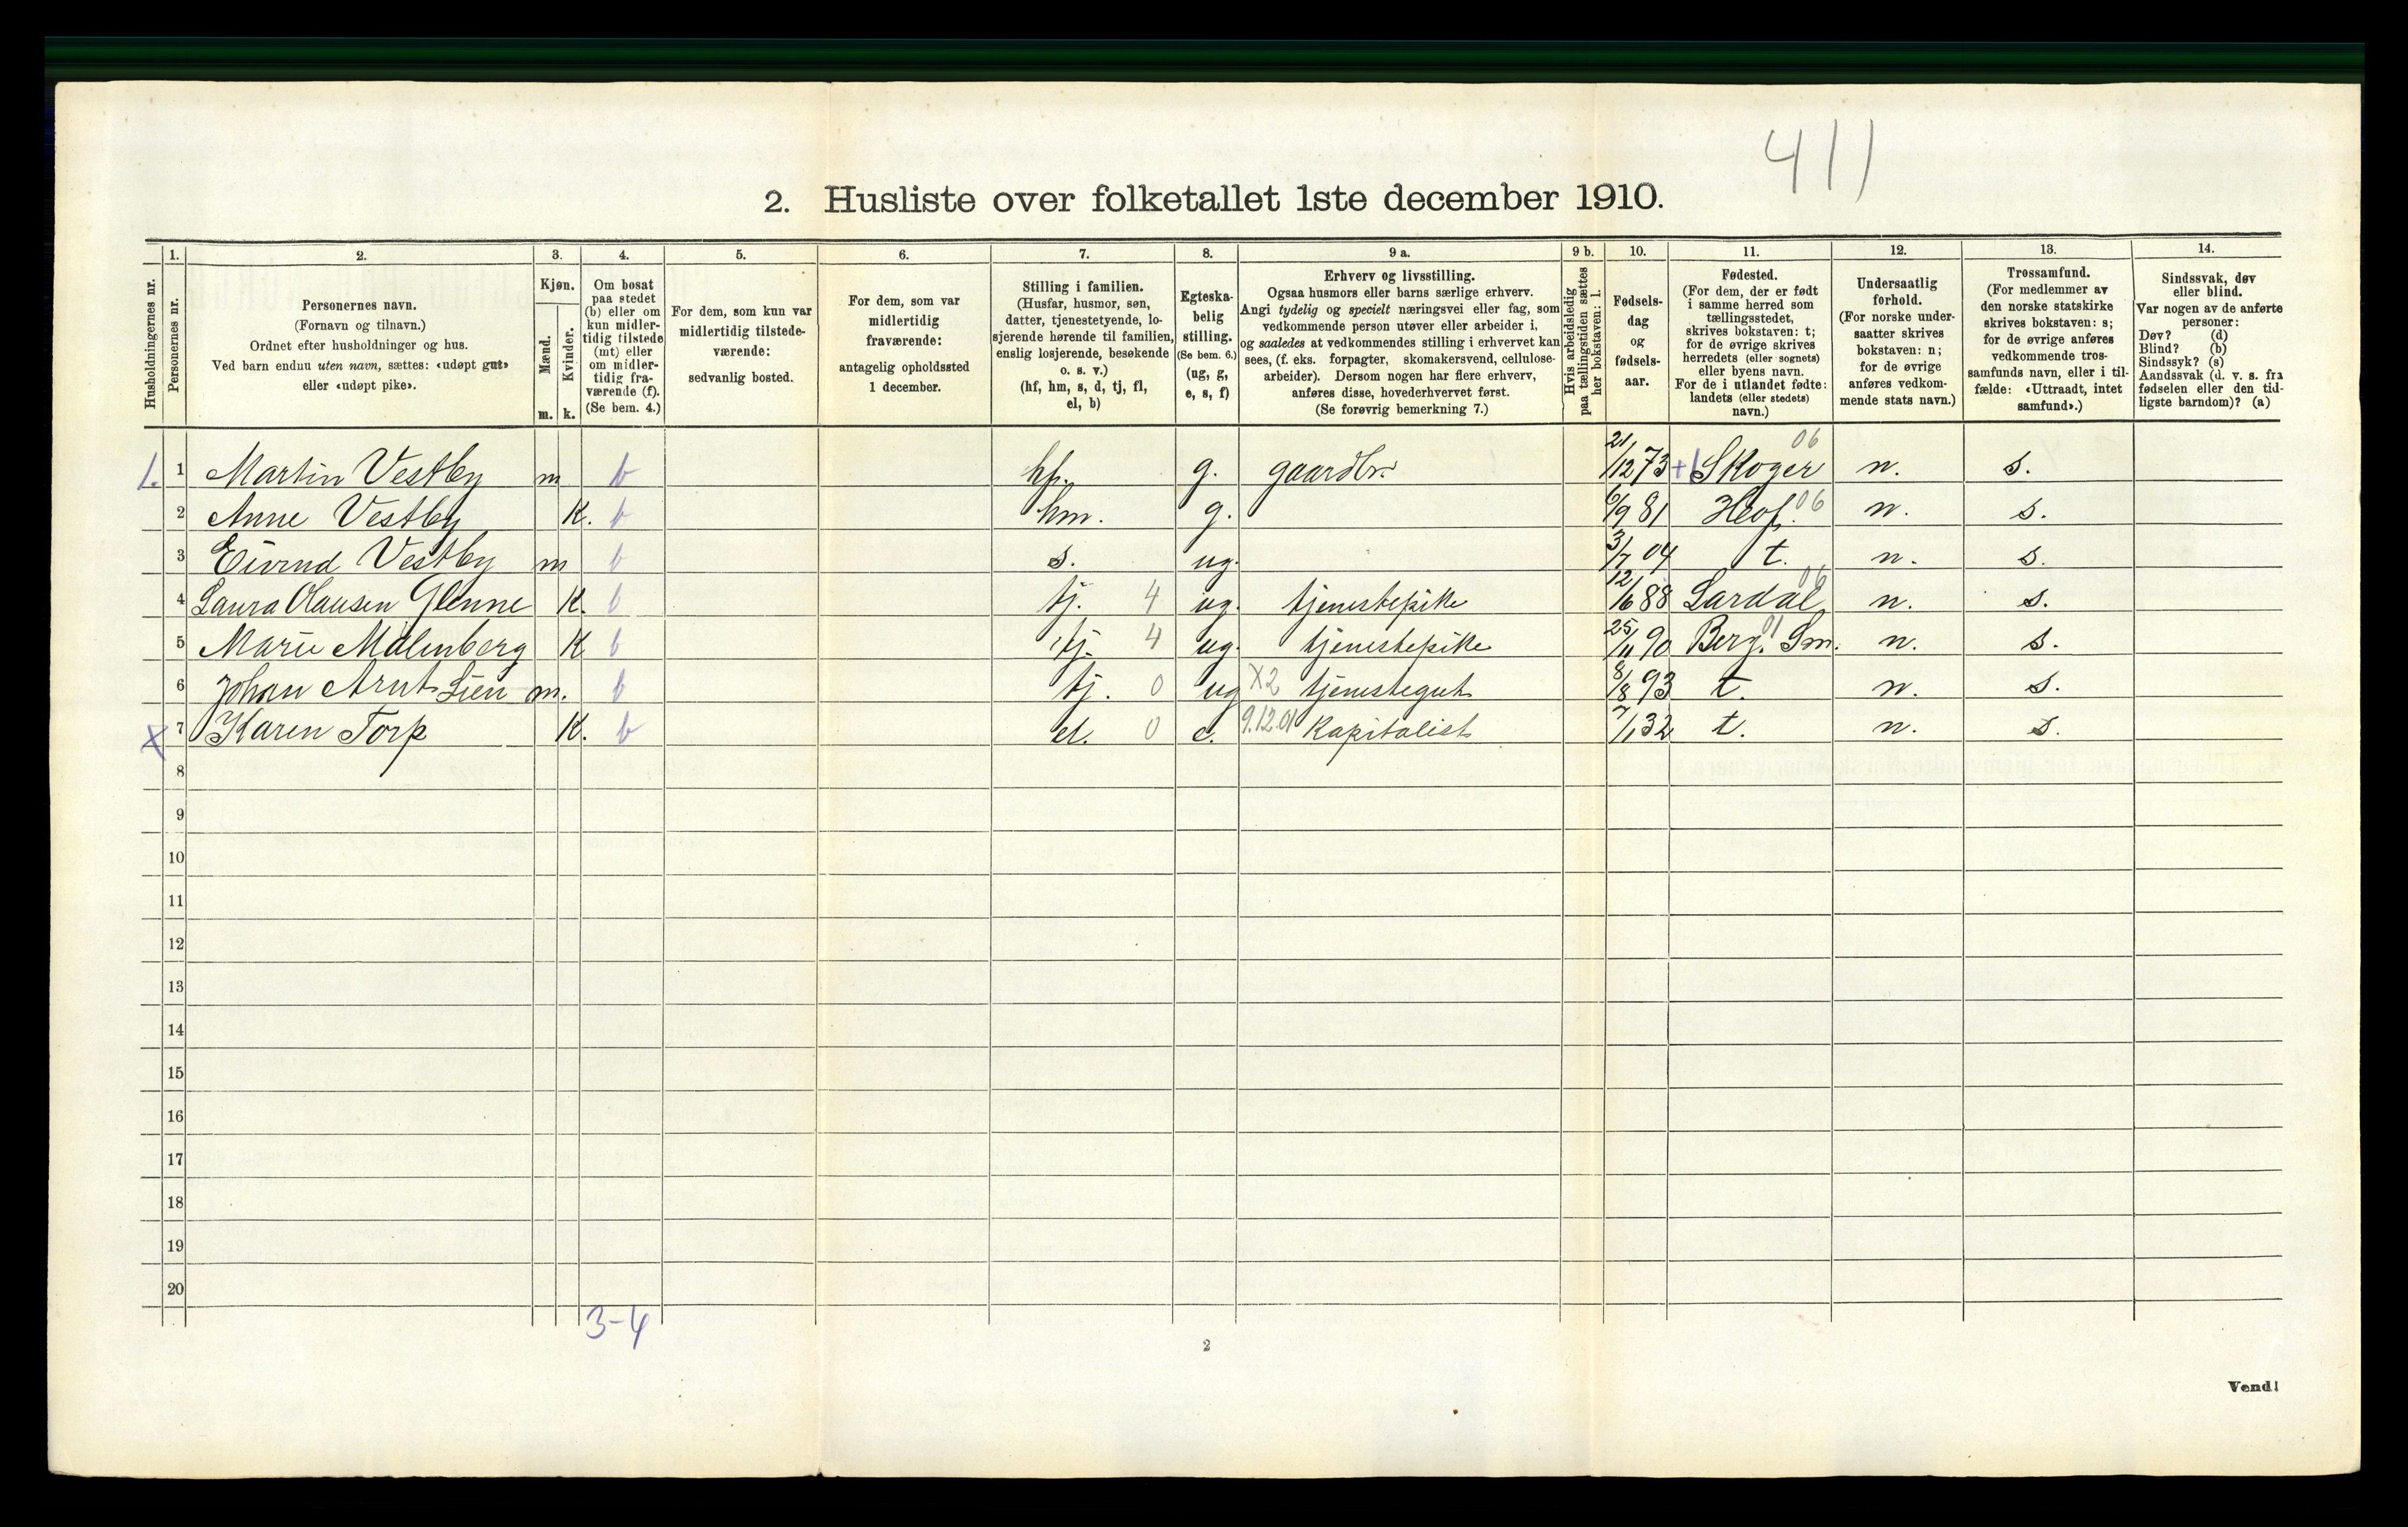 411
2. Husliste over folketallet 1ste december 1910.
Husholdningernes nr.
1. Personernes nr.
2. Personernes navn.
(Fornavn og tilnavn.)
Ordnet efter husholdninger og hus.
Ved barn endnu uten navn, sættes: «udøpt gut»
eller «udøpt pike».
3. Kjøn.
Mænd. m.
Kvinder. k.
4. Om bosat
paa stedet
(b) eller om
kun midler-
tidig tilstede
(mt) eller
om midler-
tidig fra-
værende (f).
(Se bem. 4.)
5. For dem, som kun var
midlertidig tilstede-
værende:
sedvanlig bosted.
6. For dem, som var
midlertidig
fraværende:
antagelig opholdssted
1 december.
7. Stilling i familien.
(Husfar, husmor, søn,
datter, tjenestetyende, lo-
sjerende hørende til familien,
enslig losjerende, besøkende
o. s. v.)
(hf, hm, s, d, tj, fl,
el, b)
8. Egteska-
belig
stilling.
(Se bem. 6.)
(ug, g,
e, s, f)
9 a. Erhverv og livsstilling.
Ogsaa husmors eller barns særlige erhverv.
Angi tydelig og specielt næringsvei eller fag, som
vedkommende person utøver eller arbeider i,
og saaledes at vedkommendes stilling i erhvervet kan
sees, (f. eks. forpagter, skomakersvend, cellulose-
arbeider). Dersom nogen har flere erhverv,
anføres disse, hovederhvervet først.
(Se forøvrig bemerkning 7.)
9 b. Hvis arbeidsledig
paa tællingstiden sættes
her bokstaven: l.
10. Fødsels-
dag
og
fødsels-
aar.
11. Fødested.
(For dem, der er født
i samme herred som
tællingsstedet,
skrives bokstaven: t;
for de øvrige skrives
herredets (eller sognets)
eller byens navn.
For de i utlandet fødte:
landets (eller stedets)
navn.)
12. Undersaatlig
forhold.
(For norske under-
saatter skrives
bokstaven: n;
for de øvrige
anføres vedkom-
mende stats navn.)
13. Trossamfund.
(For medlemmer av
den norske statskirke
skrives bokstaven: s;
for de øvrige anføres
vedkommende tros-
samfunds navn, eller i til-
fælde: «Uttraadt, intet
samfund».)
14. Sindssvak, døv
eller blind.
Var nogen av de anførte
personer:
Døv? (d)
Blind? (b)
Sindssyk? (s)
Aandssvak (d. v. s. fra
fødselen eller den tid-
ligste barndom)? (a)
1. 1 Martin Vestby m b hf. g. gaardbr. 21/12 73 +1 Skoger 06 n. s.
2 Anne Vestby K. b hm. g. 6/9 81 Hof. 06 n. s.
3 Eivind Vestby m b s. ug. 3/7 04 t. n. s.
4 Laura Clausen Glenne K. b tj. 4 ug. tjenestepike 12/6 88 Lardal 06 n. s.
5 Marie Malmberg K b tj. 4 ug. tjenestepike 25/11 90 Berg. Sm. 01 n. s.
6 Johan Arnt Lien m. b tj. 0 ug X2 tjenestegut 8/8 93 t. n. s.
X 7 Karen Torp K. b el. 0 e. 9.12.01 Kapitalist 7/1 32 t. n. s.
8
9
10
11
12
13
14
15
16
17
18
19
20
3-4
2
Vend!